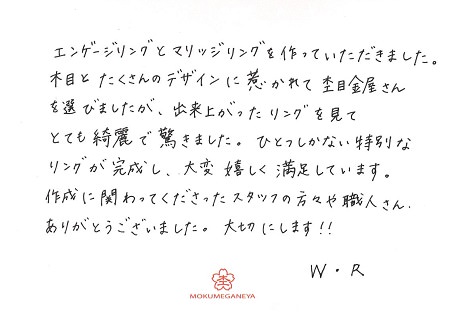 エンゲージリングとマリッジリングを作っていただきました。
木目とたくさんのデザインに惹かれて杢目金屋さん
を選びましたが、出来上がったリングを見て
とても綺麗で驚きました。ひとつしかない特別な
リングが完成し、大変嬉しく満足しています。
作成に関わってくださったスタッフの方々や職人さん、
ありがとうございました。大切にします!!
W・R
杢
MOKUMEGANEYA